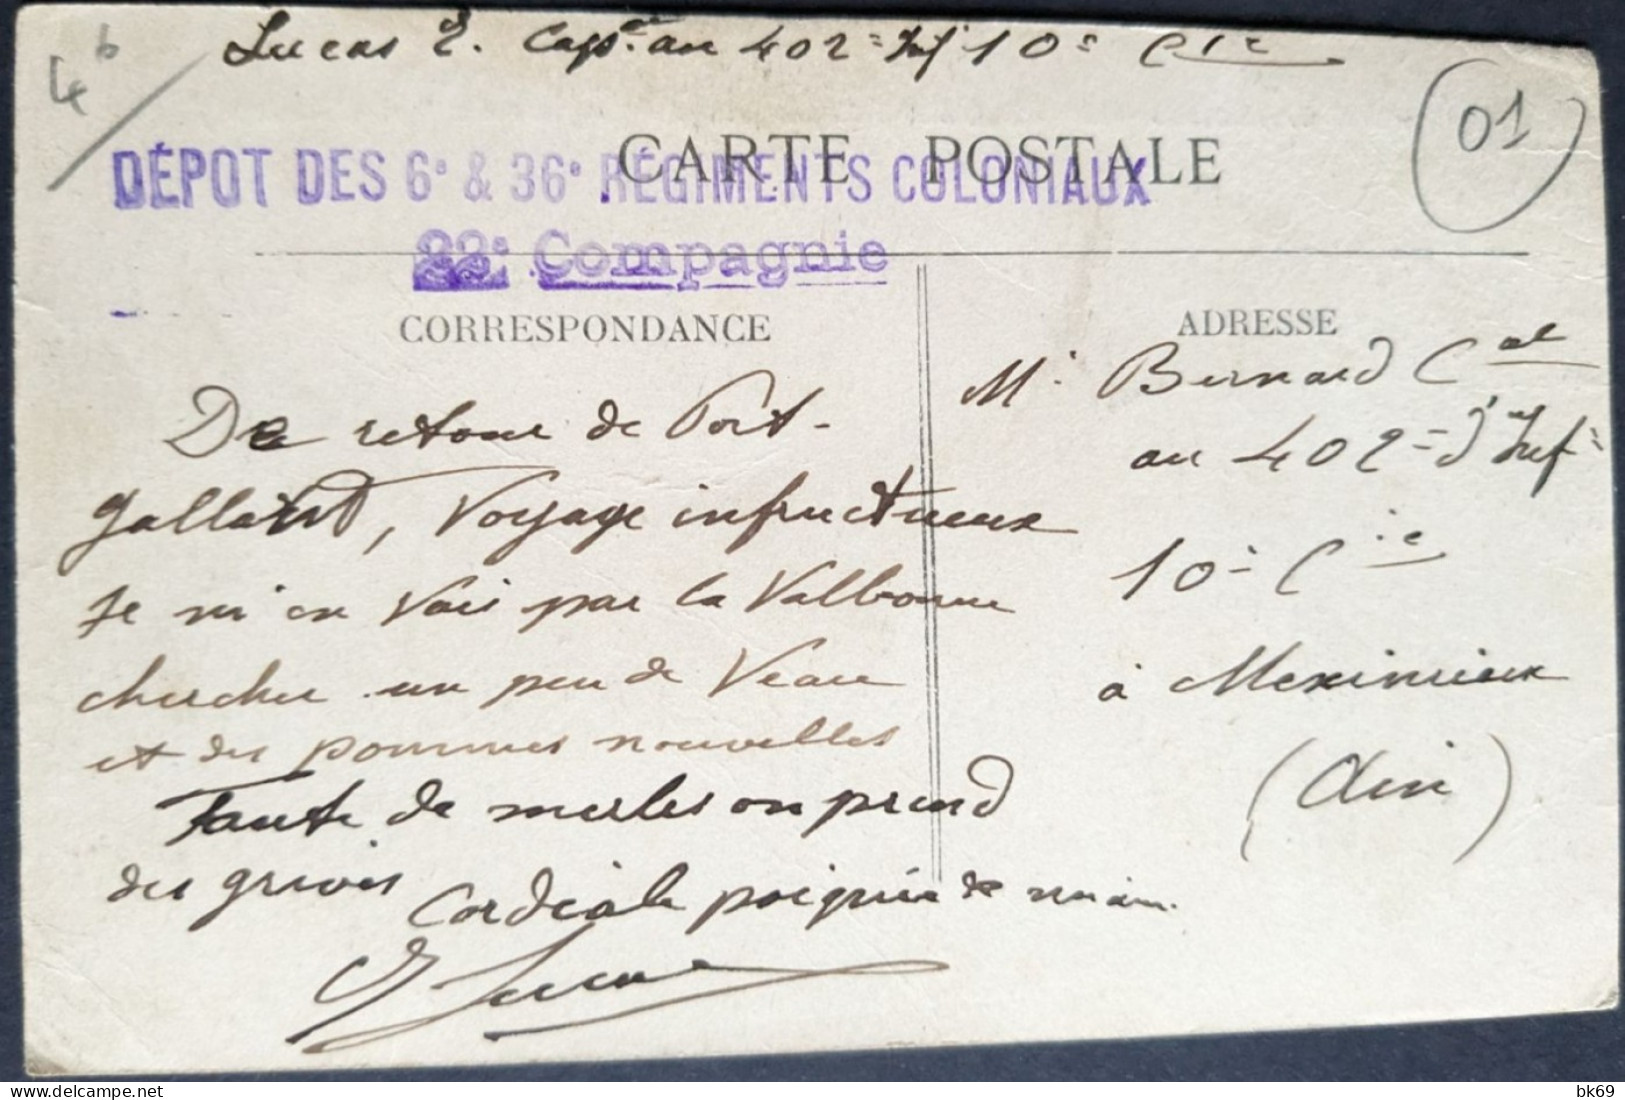 4b
Lucas E. Capal au 402e Inf 10e Cie
01
CARTE POSTALE
DÉPOT DES 6e & 36e RÉGIMENTS COLONIAUX
22e Compagnie
CORRESPONDANCE
ADRESSE
De retour de Port-
galland, Voyage infructueux
je m'en vais par la Valbonne
chercher un peu de Veau
et des pommes nouvelles
Faute de merles on prend
des grives
Cordiale poignée de main.
E Lucas
Mr Bernard Cal
au 402e d'Infie
10e Cie
à Meximieux
(Ain)
bk69